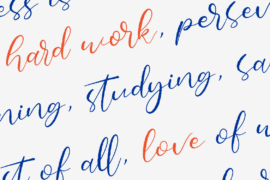 ess is
hard work, persev
ning, studying, sa
st of all, love of w